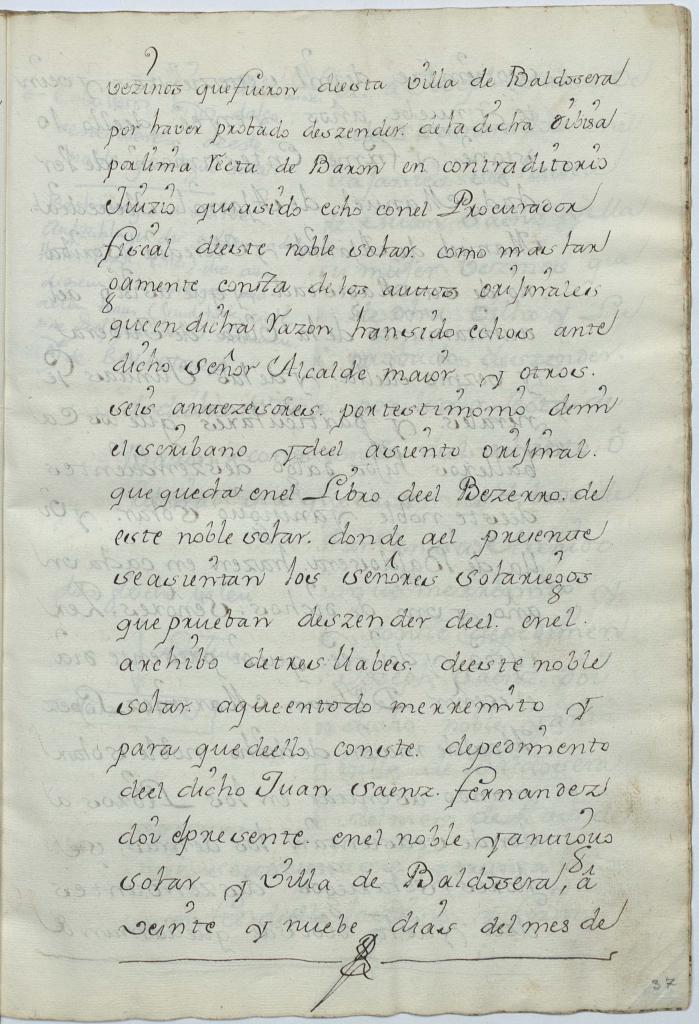 vezinos que fueron deesta villa de Baldosera
por haver probado deszender. de la dicha Vibisa
por lima recta de Baron en contraditorio
Juizio que asido echo conel Procurador
fiscal deeste noble solar. como mas lar
gamente consta de los auttos orijinales
que en dicha razon han sido echos ante
dicho señor Alcalde maior y otros.
seis antezesores. por testimonio demi
el scribano y deel asiento orijinal.
que queda enel Libro deel Bezerro. de
este noble solar. donde ael presente
se asientan los señores solariegos
que prueban deszender deel. enel.
archibo detres llabes. deeste noble
solar. aqueentodo merremito y
para que deello conste. depedimento
deel dicho Juan saenz. fernandez
doi elpresente. enel noble y antiguo
solar y villa de Baldosera, a
veinte y nuebe dias del mes de
37